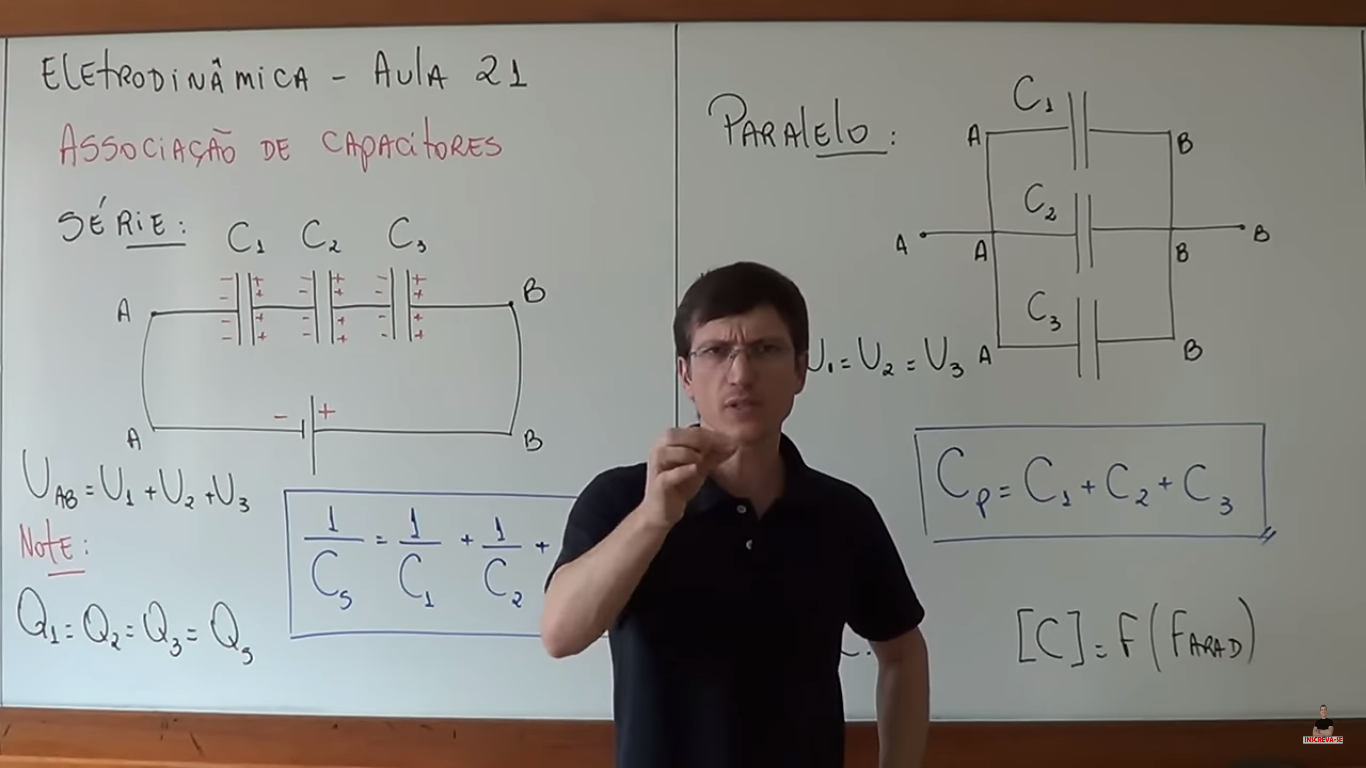 ELEtRODINÂMICA - AULA 21
ASSOCIAÇÃO DE CAPACITORES
SÉRIE:
C1 C2 C3
- + - + - +
- + - + - +
A B
- + - + - +
- + - + - +
- +
A B
UAB = U1 + U2 + U3
NotE:
Q1 = Q2 = Q3 = QS
1/CS = 1/C1 + 1/C2 +
PARALELO:
C1
A B
C2
A A B B
C3
A B
U1 = U2 = U3
CP = C1 + C2 + C3
[C] = F (FARAD)
INSCREVA-SE